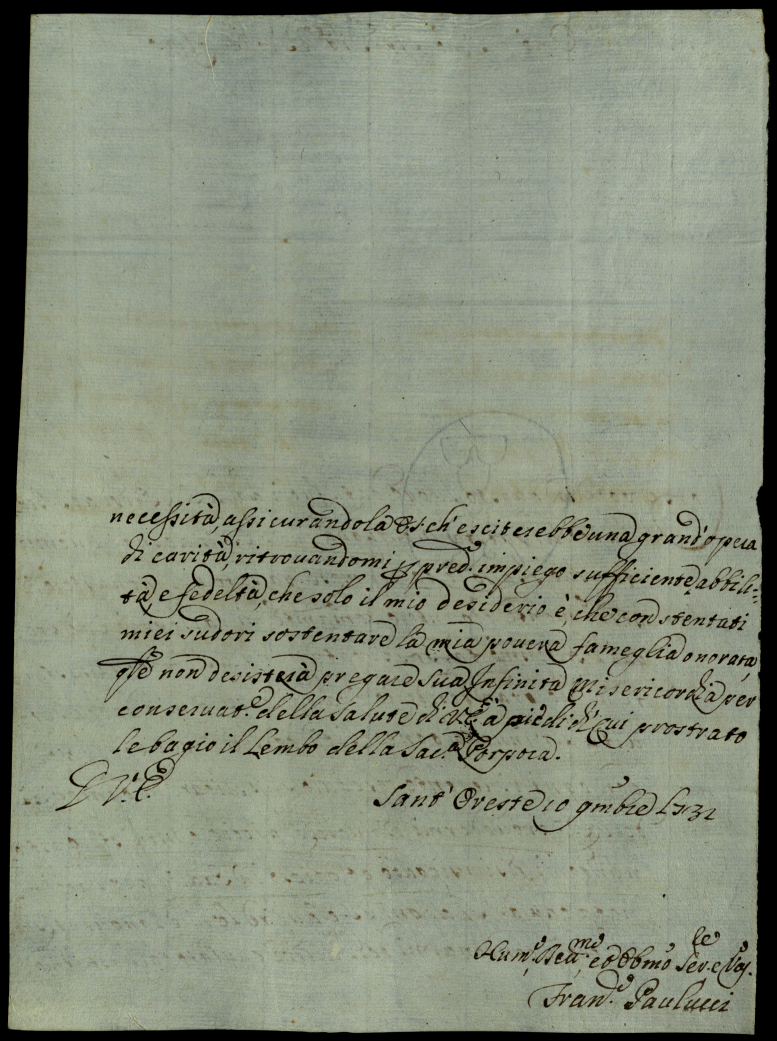 necessità, assicurandola ch'eserciterebbe una grand'opera
di carità, ritrovandomi p pred.º impiego sufficiente abbili=
tà, e fedeltà, che solo il mio desiderio è, che con stentati
miei sudori sostentare la mia povera fameglia onorata,
q̃le non desisterà pregare Sua Infinità Misericordia per
conservat.e della salute di V.E. à piedi di cui prostrato
le bagio il Lembo della Sac.a Porpora.
D V.ª E.ª
Sant' Oreste 10 9mbre 1731
Hum.º Dev.mo ed Obmo Ser.e Vas.le
Fran.º Paulucci